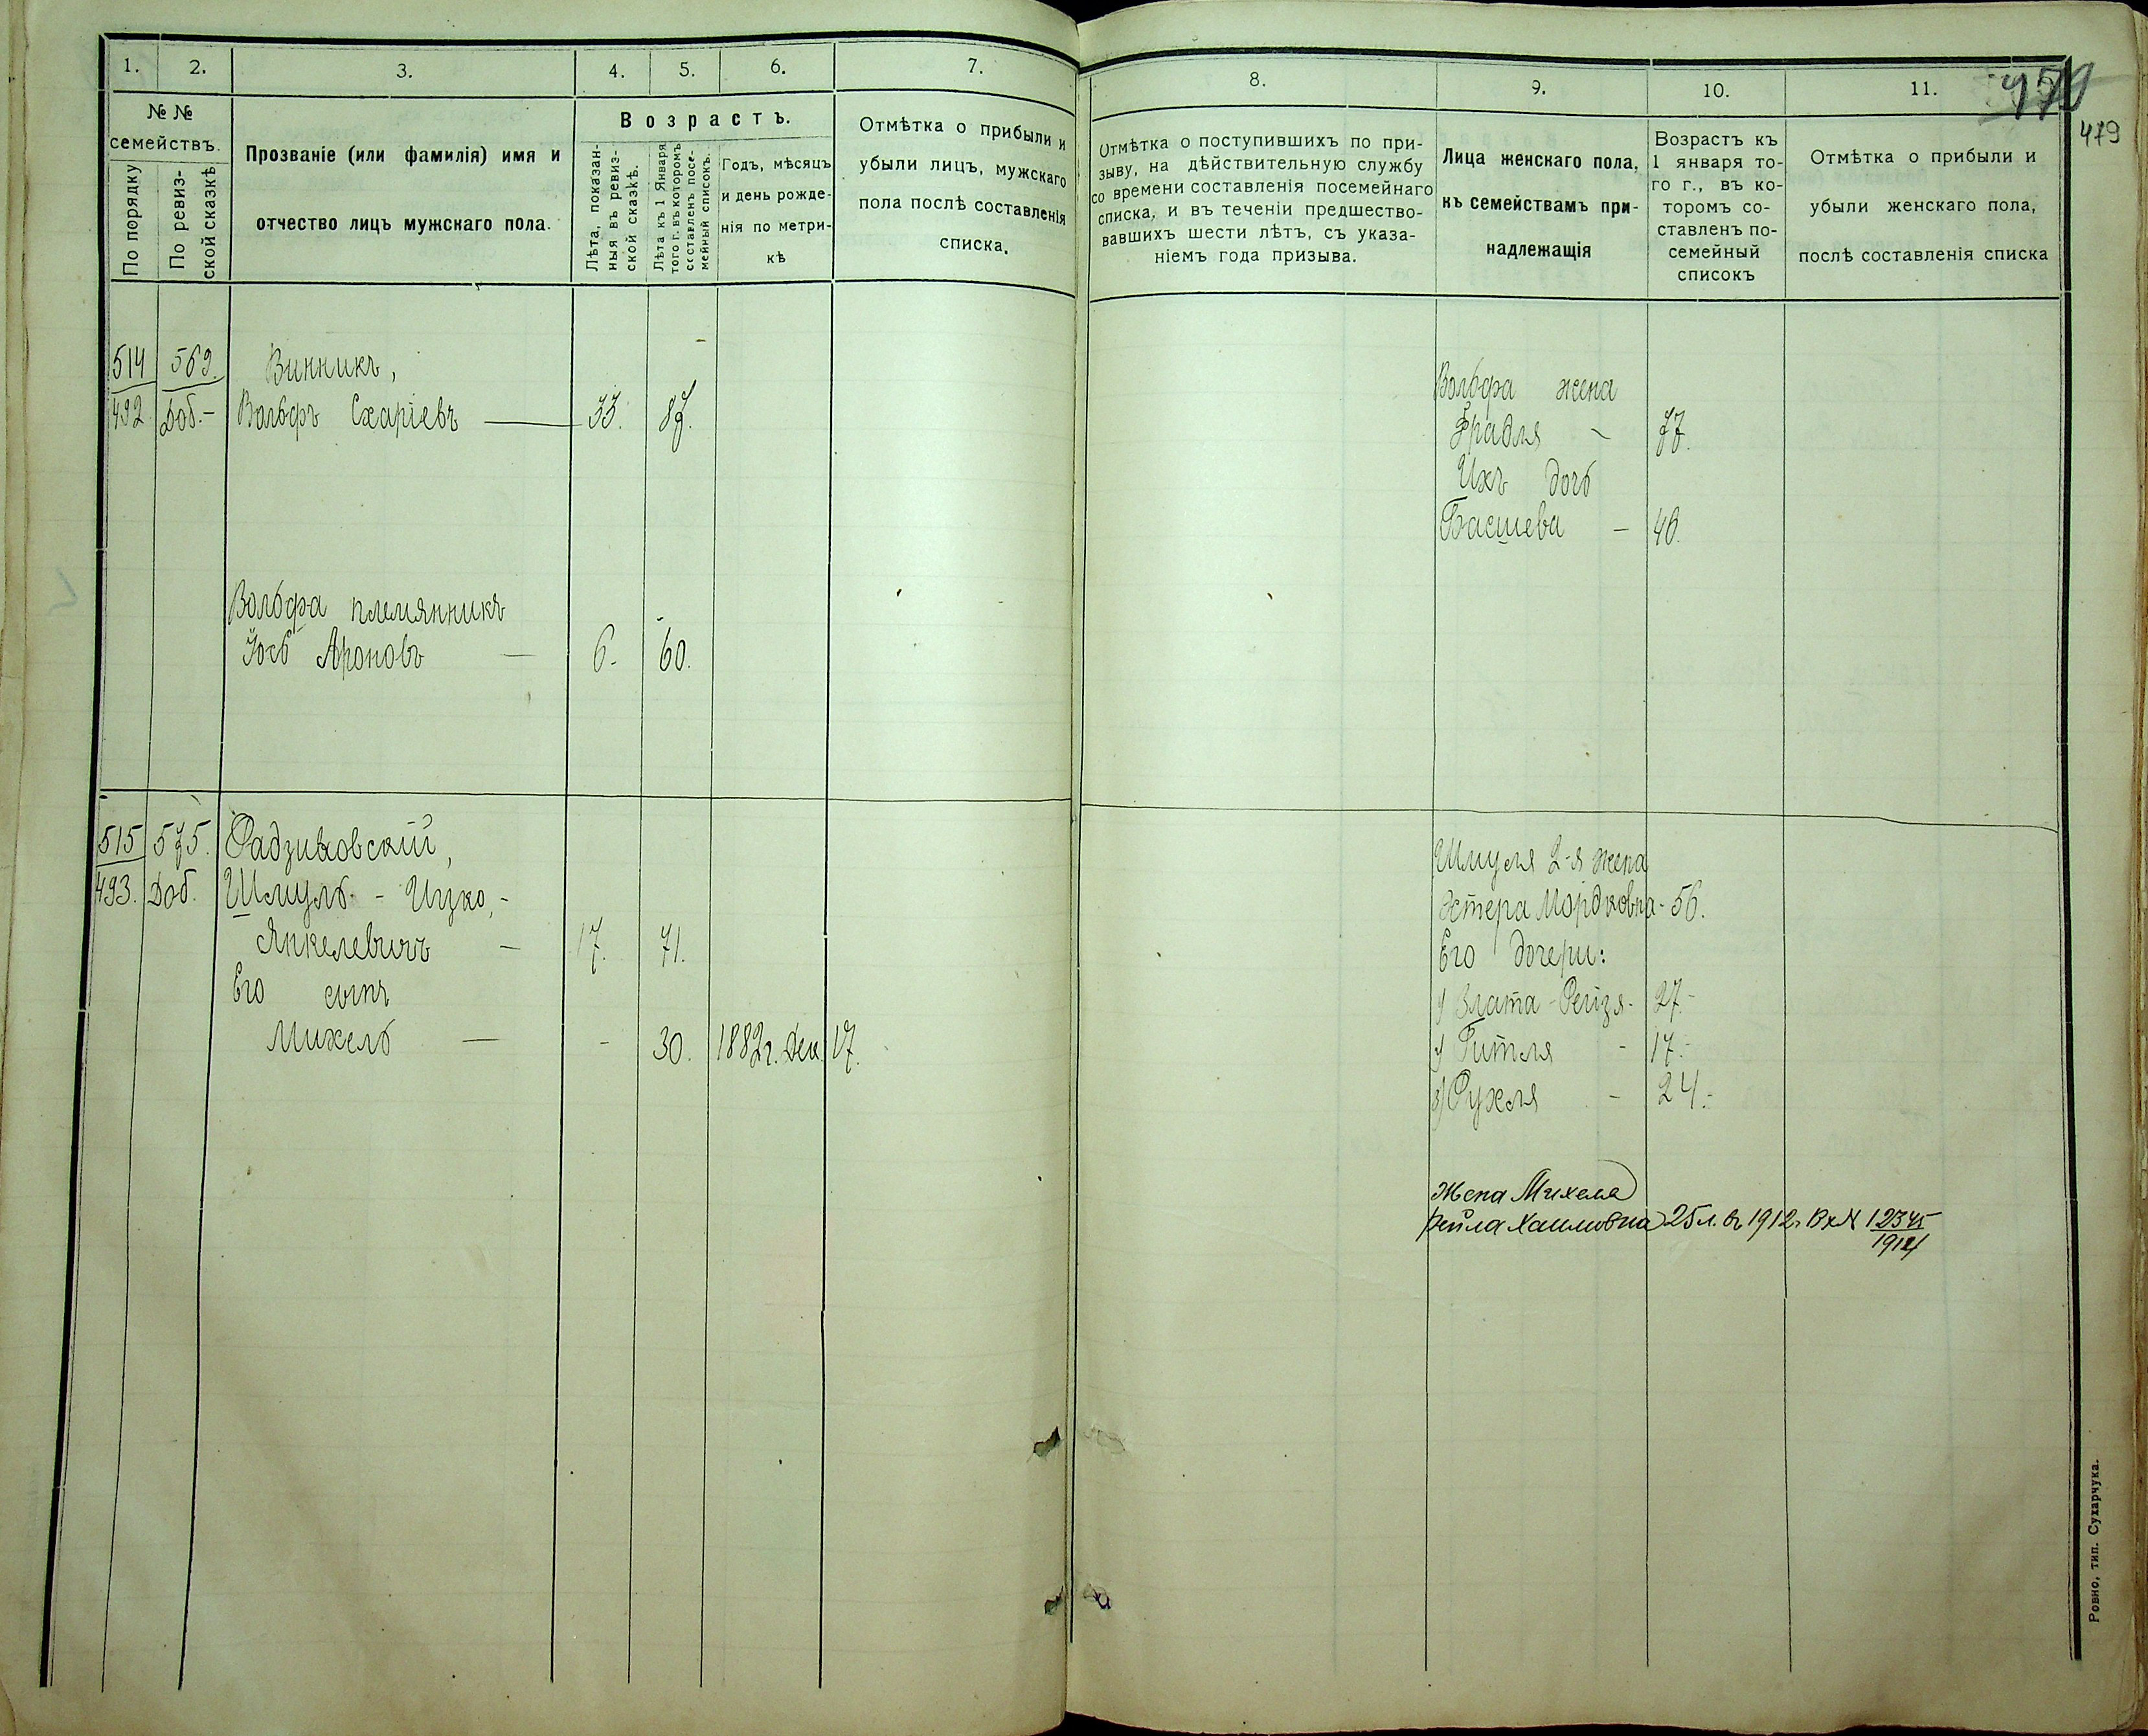 1. 2. 3. 4. 5. 6. 7.
№ №
семействъ.
По порядку
По ревиз-
ской сказкѣ
Прозваніе (или фамилія) имя и
отчество лицъ мужскаго пола.
Возрастъ.
Лѣта, показан-
ныя въ ревиз-
ской сказкѣ.
Лѣта къ 1 Января
того г. въ которомъ
составленъ посе-
мейный списокъ.
Годъ, мѣсяцъ
и день рожде-
нія по метри-
кѣ
Отмѣтка о прибыли и
убыли лицъ, мужскаго
пола послѣ составленія
списка.
514 569. Винникъ,
492 Доб.- Вольфъ Схаріевъ — 33. 87.
Вольфа племянникъ
Іось Ароновъ — 6. 60.
515 575. Радзиховскій,
493. Доб. Шмуль - Ицко, -
Янкелевичъ — 17. 71.
Его сынъ
Михель — - 30. 1882г. Дек. 17.
8. 9. 10. 11.
479
Отмѣтка о поступившихъ по при-
зыву, на дѣйствительную службу
со времени составленія посемейнаго
списка, и въ теченіи предшество-
вавшихъ шести лѣтъ, съ указа-
ніемъ года призыва.
Лица женскаго пола,
къ семействамъ при-
надлежащія
Возрастъ къ
1 января то-
го г., въ ко-
торомъ со-
ставленъ по-
семейный
списокъ
Отмѣтка о прибыли и
убыли женскаго пола,
послѣ составленія списка
Вольфа жена
Фрадля - 77.
Ихъ дочь
Басшева - 40.
Шмуля 2-я жена
Эстера Мордковна - 56.
Его дочери:
1) Злата - Рейзя - 27.-
2) Гитля - 17.-
3) Рухля - 24.-
Жена Михеля
Рейла Хаимовна 25 л. въ 1912г. Вх № 12345
1914
Ровно, тип. Сухарчука.